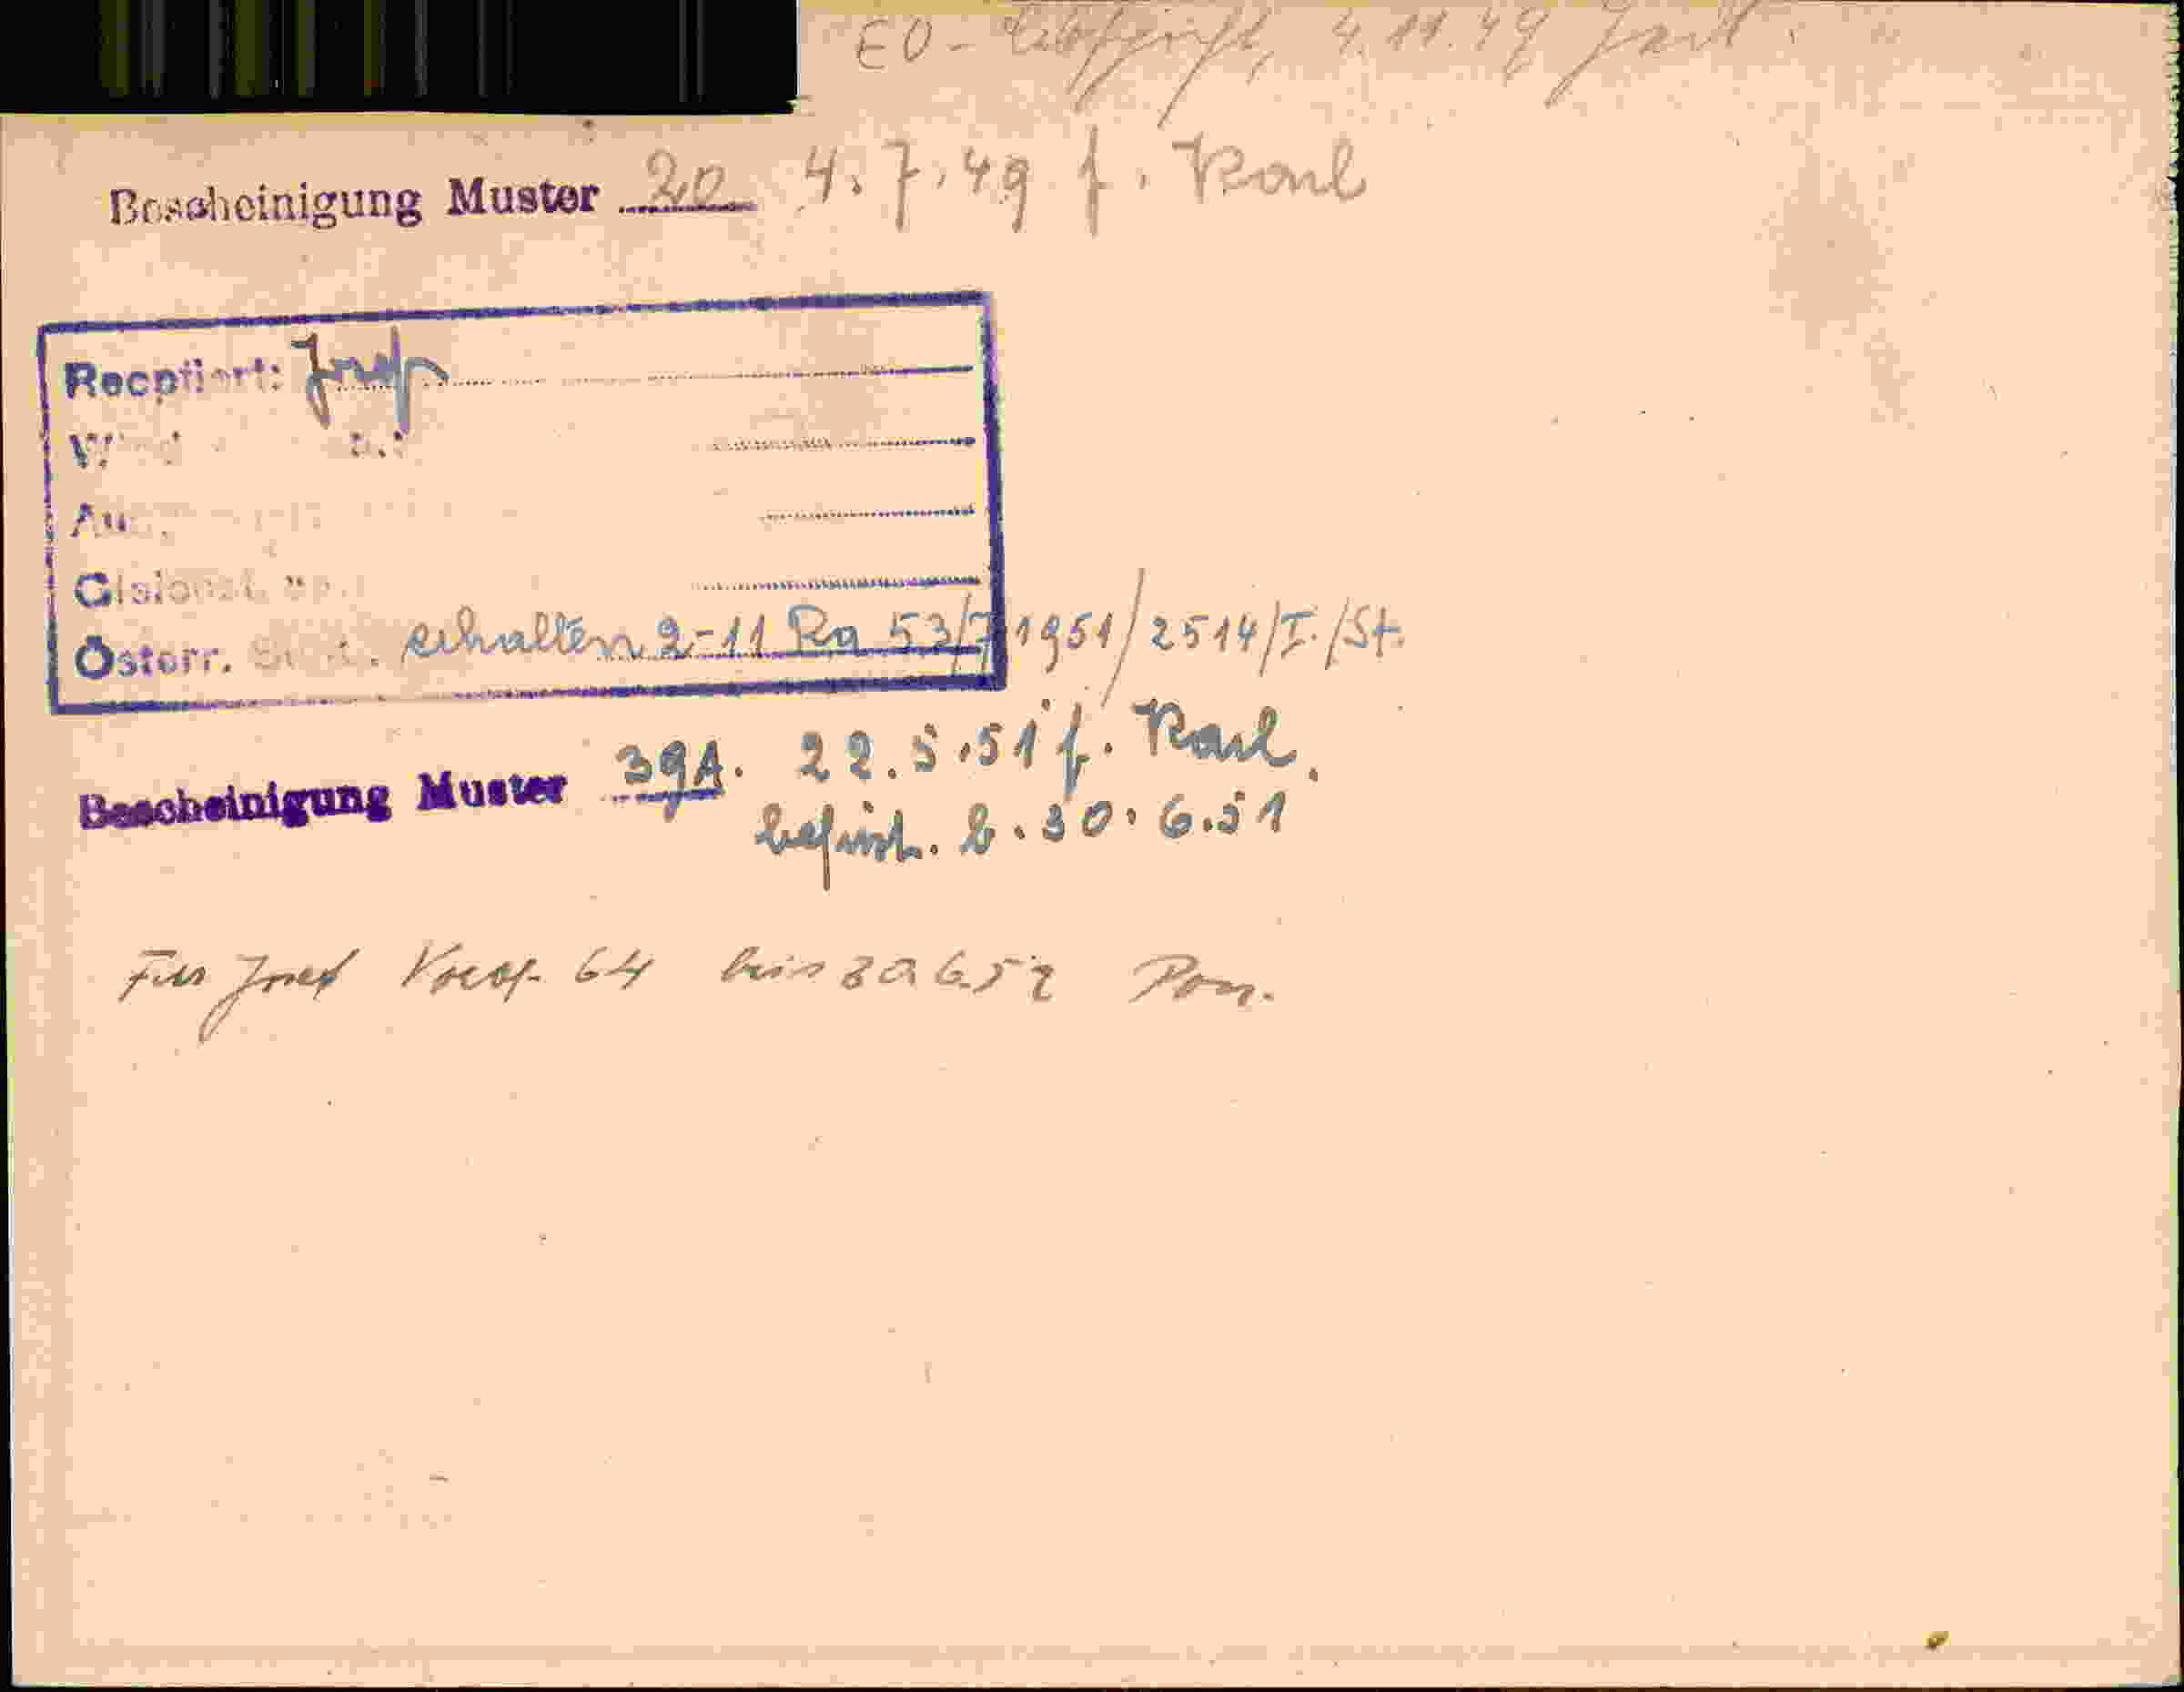 EO - 4.11.49
Bescheinigung Muster 20 4.7.49 f. Karl
Receptiert: Josef
Österr. erhalten 2-11 Ra 53/7 1951/2514/I./St.
Bescheinigung Muster 39A. 22.5.51 f. Karl.
befrist. b. 30.6.51
Für Josef 64 bis 30.6.52